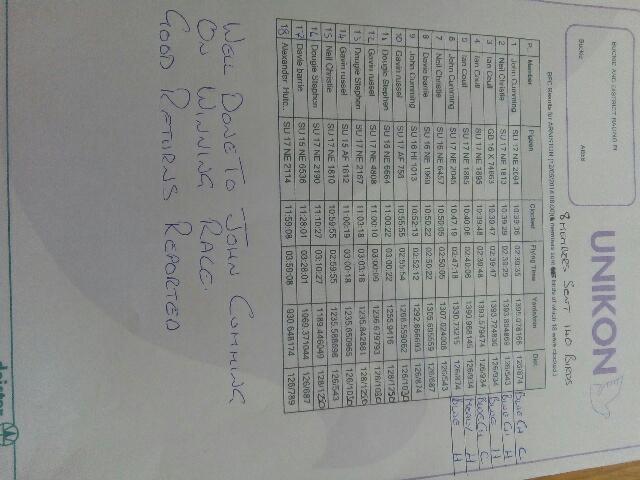 BUCKIE AND DISTRICT RACING PI
Buckie
UNIKON
8 MEMBERS SENT 140 BIRDS
P. Member Pigeon Clocked Flying Time Dist.
1 John Cumming SU 17 NE 2094 10:39:35 02:39:35 126/874 BLUE CH C
2 Neil Christie SU 17 NE 1813 10:39:29 02:39:29 126/543 BLUE CH H
3 Ian Coull 10:39:47 02:39:47 126/934 BLUE H
4 Ian Coull SU 17 NE 1895 10:39:48 02:39:48 1393.579474 126/934 BLUE CH C
5 Ian Coull SU 17 NE 1885 10:40:06 02:40:06 1390.968145 126/934 H
6 John Cumming SU 17 NE 2045 10:47:19 02:47:18 1330.73215 126/874 BLUE H
7 Neil Christie SU 16 NE 6457 10:50:05 02:50:05 1307.024008 126/543
8 Davie barrie SU 16 NE 1969 10:50:22 02:50:22 1305.695559 126/687
9 John Cumming SU 16 HI 1013 10:52:13 02:52:12 1292.866693 126/874
10 Gavin russel SU 17 AF 756 10:55:55 02:55:54 1266.559062
11 Dougie Stephen SU 16 NE 6664 11:00:22 03:00:22 1255.9416
12 Gavin russel SU 17 NE 4808 11:00:10 03:00:09 1236.679793
13 Dougie Stephen SU 17 NE 2167 11:03:18 03:03:18 1235.842881
14 Gavin russel SU 15 AF 1612 11:00:19 03:00:18 1235.650865
15 Neil Christie SU 17 NE 1810 10:59:55 02:59:55 1235.588698 126/543
16 Dougie Stephen SU 17 NE 2190 11:10:27 03:10:27 1189.446049
17 Davie barrie SU 15 NE 6536 11:28:01 03:28:01 1069.371044 126/687
18 Alexander Hutc.. SU 17 NE 2114 11:59:08 03:59:08 930.648174 126/789
WELL DONE TO JOHN CUMMING
ON WINNING RACE.
GOOD RETURNS REPORTED